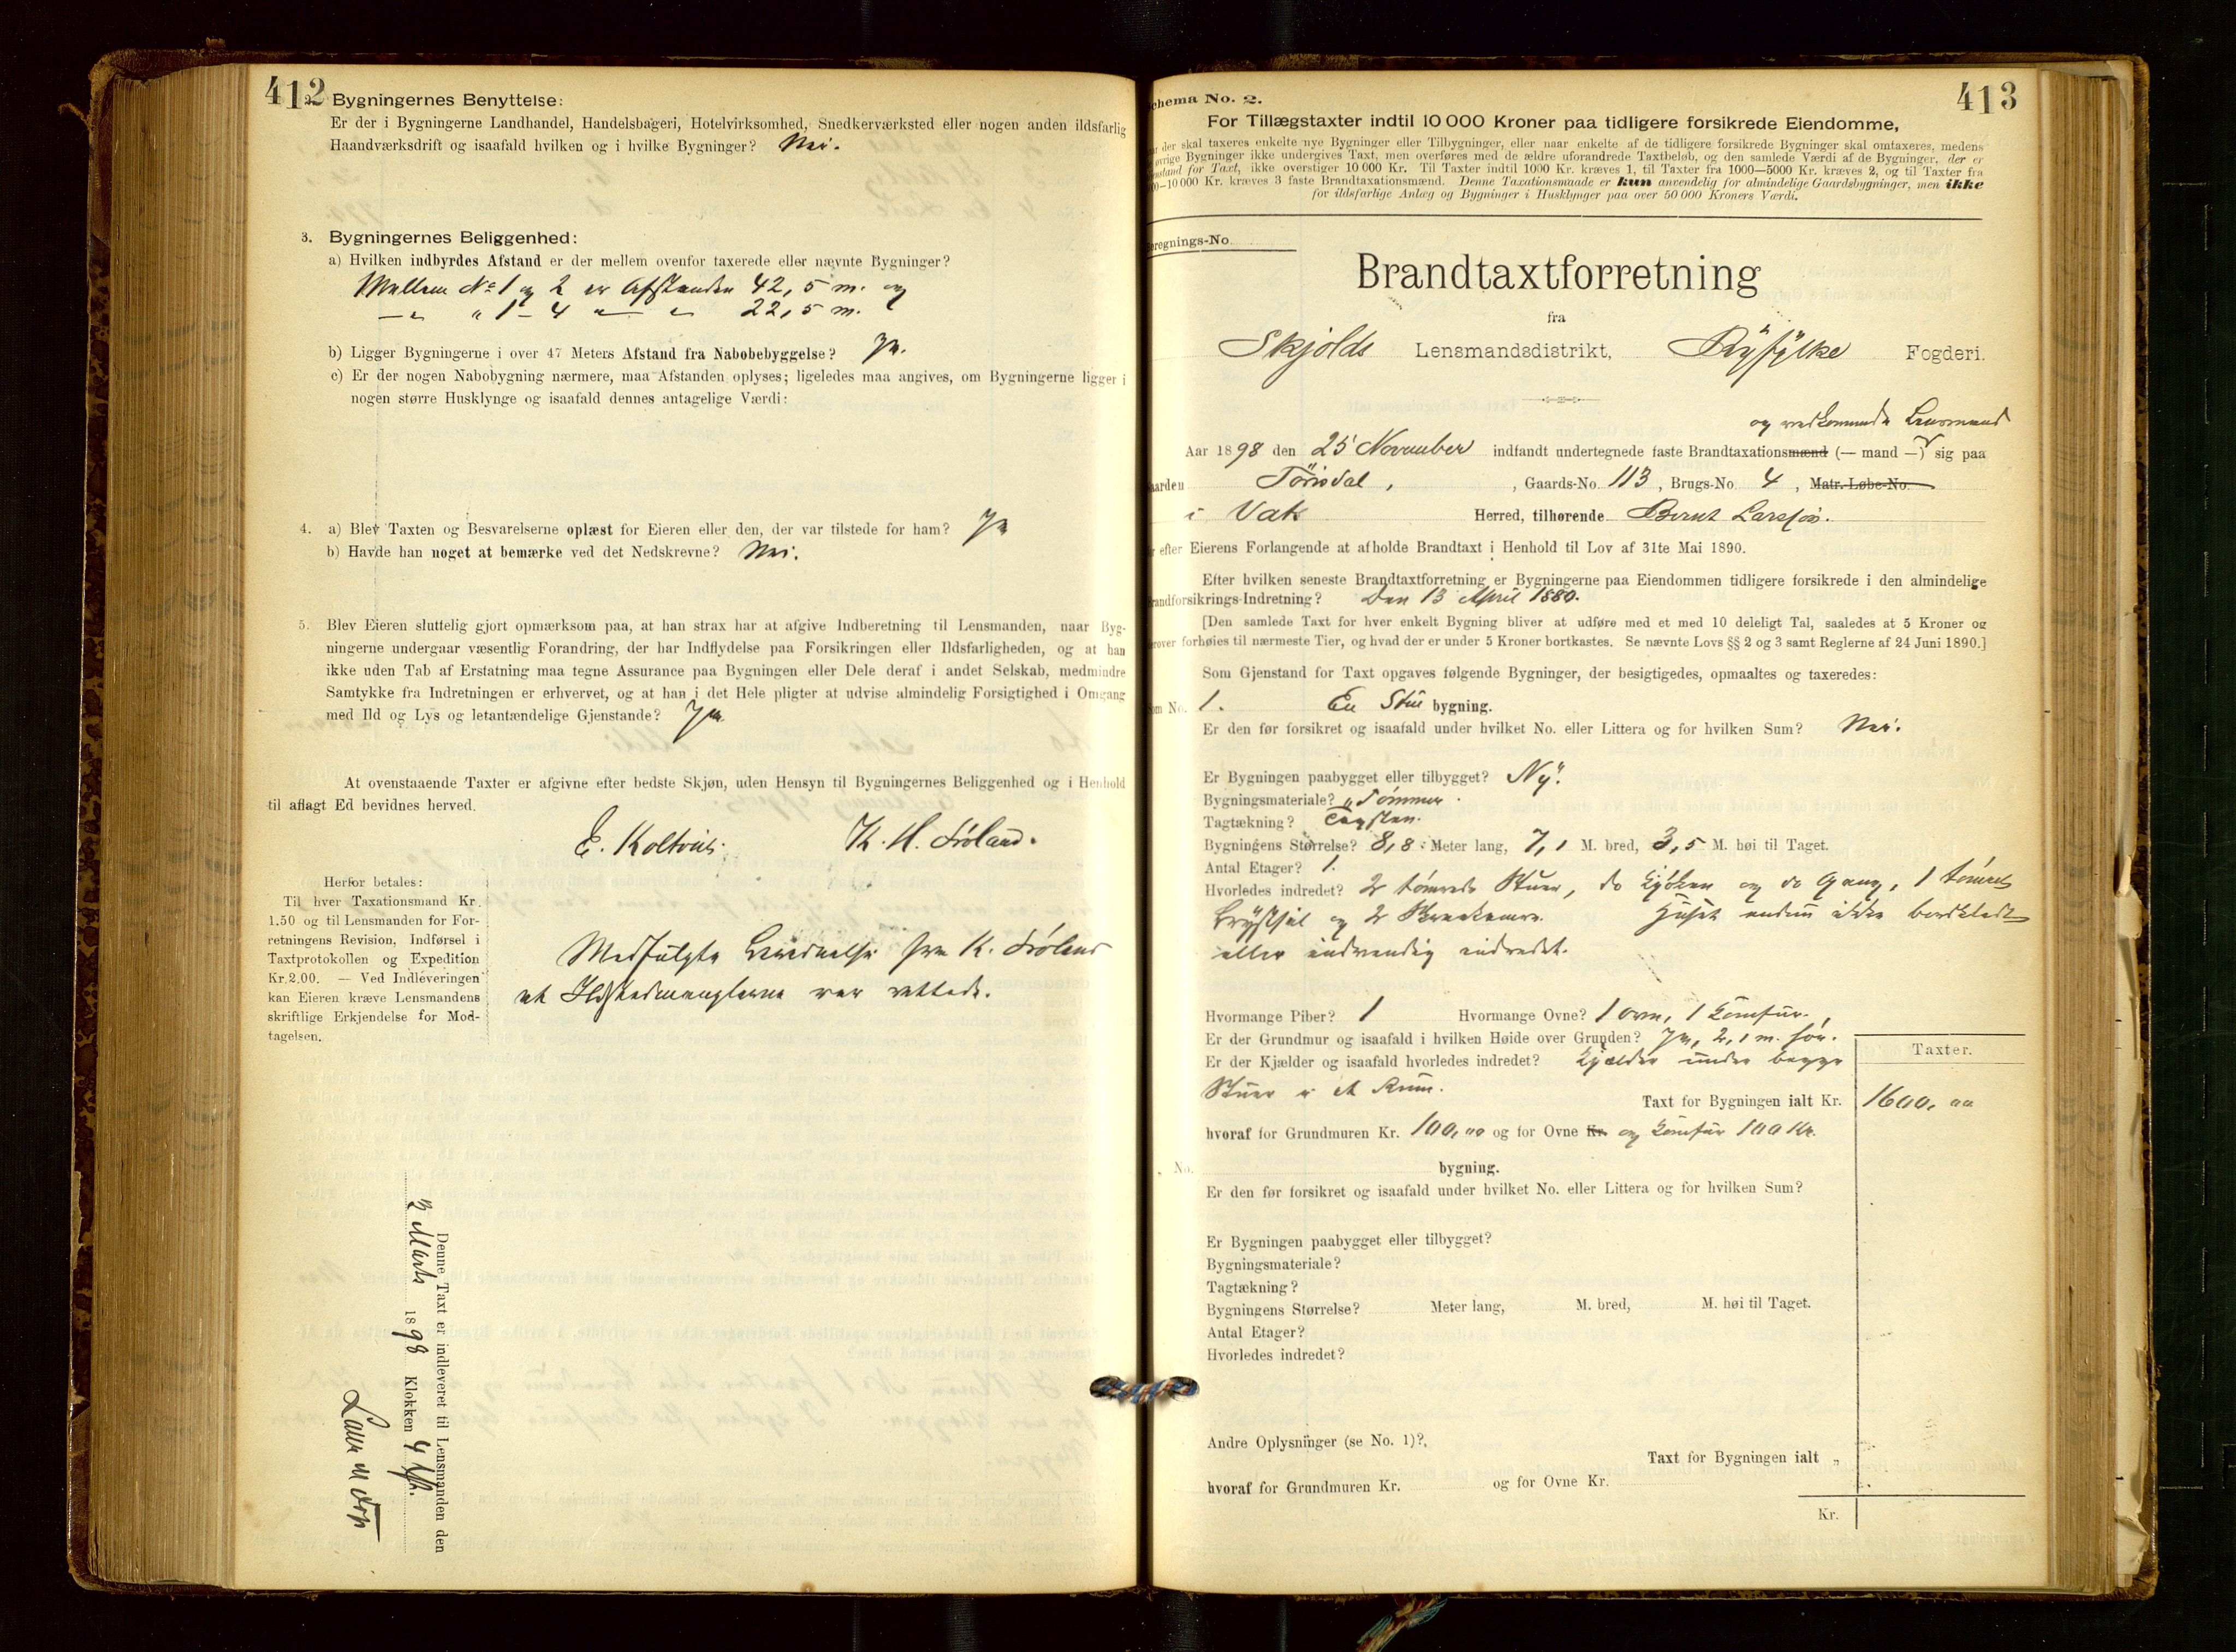 412
2. Bygningernes Benyttelse:
Er der i Bygningerne Landhandel, Handelsbageri, Hotelvirksomhed, Snedkerværksted eller nogen anden ildsfarlig
Haandværksdrift og isaafald hvilken og i hvilke Bygninger? Nei.
3. Bygningernes Beliggenhed:
a) Hvilken indbyrdes Afstand er der mellem ovenfor taxerede eller nævnte Bygninger?
Mellem No 1 og 2 er Afstanden 42,5 m. og
—"— " 1 – 4 —"— " 22,5 m.
b) Ligger Bygningerne i over 47 Meters Afstand fra Nabobebyggelse? Ja.
c) Er der nogen Nabobygning nærmere, maa Afstanden oplyses; ligeledes maa angives, om Bygningerne ligger i
nogen større Husklynge og isaafald dennes antagelige Værdi:
4. a) Blev Taxten og Besvarelserne oplæst for Eieren eller den, der var tilstede for ham? Ja
b) Havde han noget at bemærke ved det Nedskrevne? Nei.
5. Blev Eieren sluttelig gjort opmærksom paa, at han strax har at afgive Indberetning til Lensmanden, naar Byg-
ningerne undergaar væsentlig Forandring, der har Indflydelse paa Forsikringen eller Ildsfarligheden, og at han
ikke uden Tab af Erstatning maa tegne Assurance paa Bygningen eller Dele deraf i andet Selskab, medmindre
Samtykke fra Indretningen er erhvervet, og at han i det Hele pligter at udvise almindelig Forsigtighed i Omgang
med Ild og Lys og letantændelige Gjenstande? Ja.
At ovenstaaende Taxter er afgivne efter bedste Skjøn, uden Hensyn til Bygningernes Beliggenhed og i Henhold
til aflagt Ed bevidnes herved.
E. Koltveit. K. H. Frøland.
Herfor betales:
Til hver Taxationsmand Kr.
1.50 og til Lensmanden for For-
retningens Revision, Indførsel i
Taxtprotokollen og Expedition
Kr. 2.00. — Ved Indleveringen
kan Eieren kræve Lensmandens
skriftlige Erkjendelse for Mod-
tagelsen.
Medfulgte Bevidnelse fra K. Frøland
at Ildstedmanglerne var rettede.
Denne Taxt er indleveret til Lensmanden den
2 Marts 1898 Klokken 4
413
Schema No. 2.
For Tillægstaxter indtil 10 000 Kroner paa tidligere forsikrede Eiendomme,
der skal taxeres enkelte nye Bygninger eller Tilbygninger, eller naar enkelte af de tidligere forsikrede Bygninger skal omtaxeres, medens
øvrige Bygninger ikke undergives Taxt, men overføres med de ældre uforandrede Taxtbeløb, og den samlede Værdi af de Bygninger, der er
Gjenstand for Taxt, ikke overstiger 10 000 Kr. Til Taxter indtil 1000 Kr. kræves 1, til Taxter fra 1000—5000 Kr. kræves 2, og til Taxter fra
5000—10 000 Kr. kræves 3 faste Brandtaxationsmænd. Denne Taxationsmaade er kun anvendelig for almindelige Gaardsbygninger, men ikke
for ildsfarlige Anlæg og Bygninger i Husklynger paa over 50 000 Kroners Værdi.
Beregnings-No.
Brandtaxtforretning
fra
Skjolds Lensmandsdistrikt, Ryfylke Fogderi.
og vedkommende Lensmand
Aar 1898 den 25 November indfandt undertegnede faste Brandtaxationsmænd (— mand —) sig paa
Gaarden Tørisdal, , Gaards-No. 113, Brugs-No. 4, Matr.-Løbe-No.
i Vats Herred, tilhørende Bernt Larssøn.
for efter Eierens Forlangende at afholde Brandtaxt i Henhold til Lov af 31te Mai 1890.
Efter hvilken seneste Brandtaxtforretning er Bygningerne paa Eiendommen tidligere forsikrede i den almindelige
Brandforsikrings-Indretning? Den 13 April 1880.
[Den samlede Taxt for hver enkelt Bygning bliver at udføre med et med 10 deleligt Tal, saaledes at 5 Kroner og
derover forhøies til nærmeste Tier, og hvad der er under 5 Kroner bortkastes. Se nævnte Lovs §§ 2 og 3 samt Reglerne af 24 Juni 1890.]
Som Gjenstand for Taxt opgaves følgende Bygninger, der besigtigedes, opmaaltes og taxeredes:
Som No. 1. En Stue bygning.
Er den før forsikret og isaafald under hvilket No. eller Littera og for hvilken Sum? Nei.
Er Bygningen paabygget eller tilbygget? Ny.
Bygningsmateriale? Tømmer.
Tagtækning? Tagsten.
Bygningens Størrelse? 8,8 Meter lang, 7,1 M. bred, 3,5 M. høi til Taget.
Antal Etager? 1.
Hvorledes indreddet? 2 tømrede Stuer, do Kjøken og do Gang, 1 tømret
og 2 Huset endnu ikke bordklædt
eller indvendig indredet.
Hvormange Piber? 1 Hvormange Ovne? 1 ovn, 1 Komfur.
Er der Grundmur og isaafald i hvilken Høide over Grunden? Ja, 2,1 m. høi.
Er der Kjælder og isaafald hvorledes indredet? Kjælder under begge
Stuer i et Rum.
Taxter.
Taxt for Bygningen ialt Kr. 1600,00
hvoraf for Grundmuren Kr. 100,00 og for Ovne Kr. og Komfur 100 Kr.
No. bygning.
Er den før forsikret og isaafald under hvilket No. eller Littera og for hvilken Sum?
Er Bygningen paabygget eller tilbygget?
Bygningsmateriale?
Tagtækning?
Bygningens Størrelse? Meter lang, M. bred, M. høi til Taget.
Antal Etager?
Hvorledes indredet?
Andre Oplysninger (se No. 1)?
Taxt for Bygningen ialt „
hvoraf for Grundmuren Kr. og for Ovne Kr.
Kr.